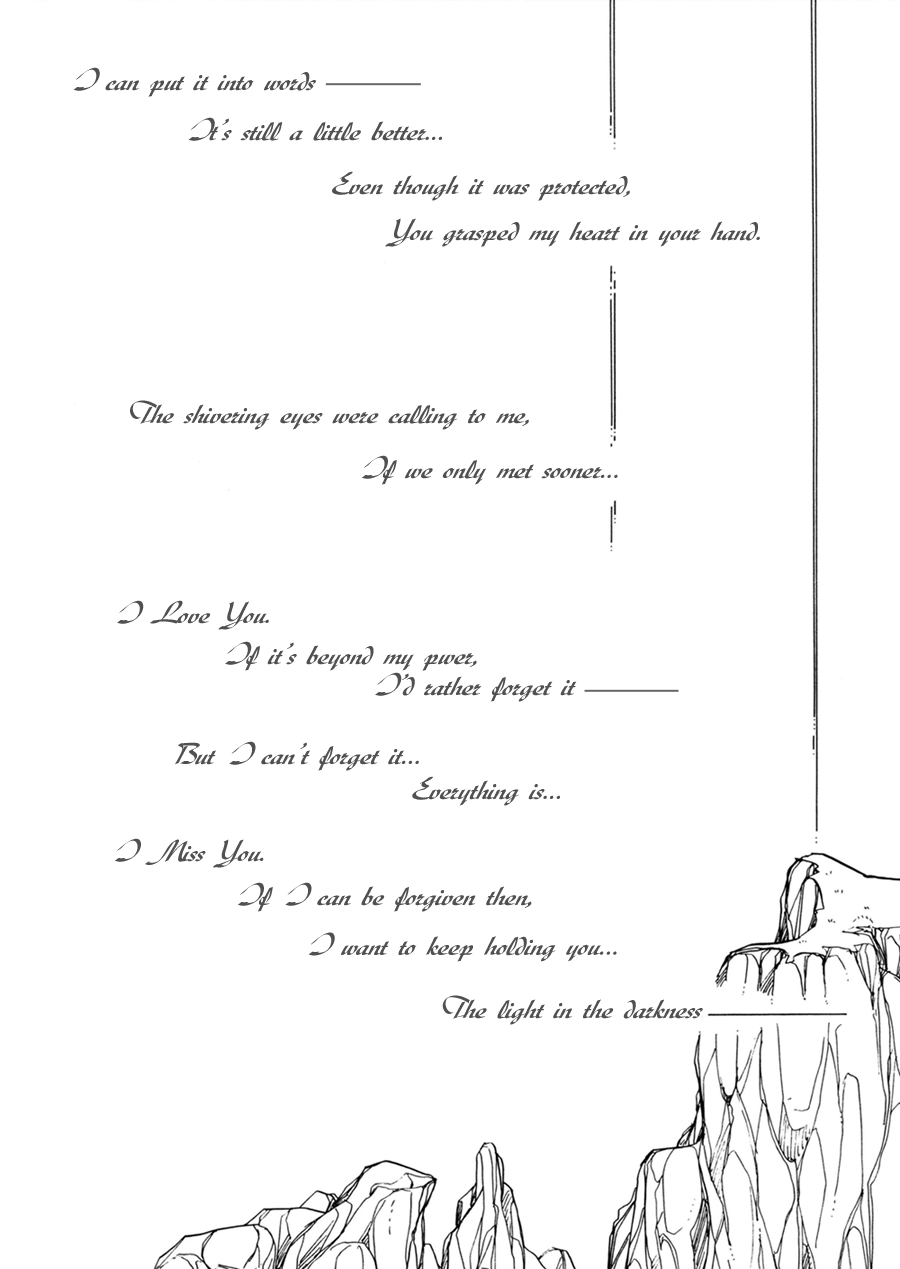 I can put it into words ———
It's still a little better...
Even though it was protected,
You grasped my heart in your hand.
The shivering eyes were calling to me,
If we only met sooner...
I Love You.
If it's beyond my pwer,
I'd rather forget it ———
But I can't forget it...
Everything is...
I Miss You.
If I can be forgiven then,
I want to keep holding you...
The light in the darkness ———